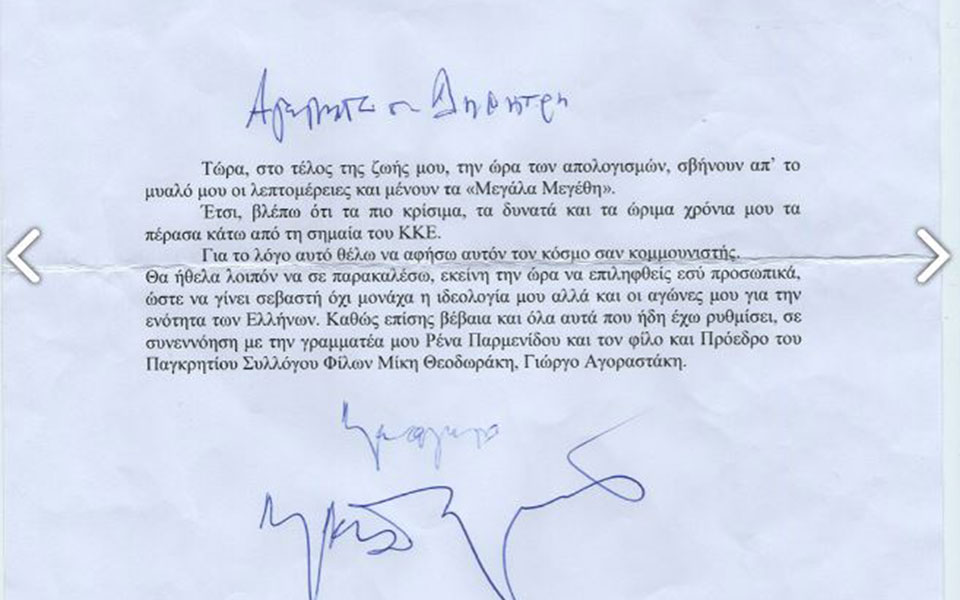 Αγαπητέ μου Δημήτρη
Τώρα, στο τέλος της ζωής μου, την ώρα των απολογισμών, σβήνουν απ’ το
μυαλό μου οι λεπτομέρειες και μένουν τα «Μεγάλα Μεγέθη».
Έτσι, βλέπω ότι τα πιο κρίσιμα, τα δυνατά και τα ώριμα χρόνια μου τα
πέρασα κάτω από τη σημαία του ΚΚΕ.
Για το λόγο αυτό θέλω να αφήσω αυτόν τον κόσμο σαν κομμουνιστής.
Θα ήθελα λοιπόν να σε παρακαλέσω, εκείνη την ώρα να επιληφθείς εσύ προσωπικά,
ώστε να γίνει σεβαστή όχι μονάχα η ιδεολογία μου αλλά και οι αγώνες μου για την
ενότητα των Ελλήνων. Καθώς επίσης βέβαια και όλα αυτά που ήδη έχω ρυθμίσει, σε
συνεννόηση με την γραμματέα μου Ρένα Παρμενίδου και τον φίλο και Πρόεδρο του
Παγκρητίου Συλλόγου Φίλων Μίκη Θεοδωράκη, Γιώργο Αγοραστάκη.